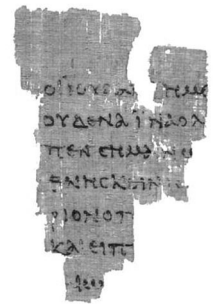 ΟΙΙΟΥΔΑΙ ΗΜ
ΟΥΔΕΝΑΙΝΑΟΛ
ΠΕΝϹΗΜΑΙΝΩ
ΘΝΗϹΚΕΙΝ
ΡΙΟΝΟΠ
ΚΑΙΕΙΠ
ΑΙΩ